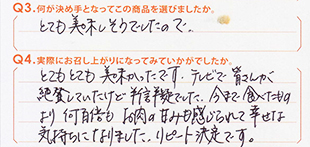 Q3.何が決め手となってこの商品を選びましたか。
とても美味しそうでしたので。
Q4.実際にお召し上がりになってみていかがでしたか。
とてもとても美味かったです。テレビで皆さんが
絶賛していたけど半信半疑でした。今まで食べたもの
より何百倍もお肉の甘みも感じられて幸せな
気持ちになりました。リピート決定です。